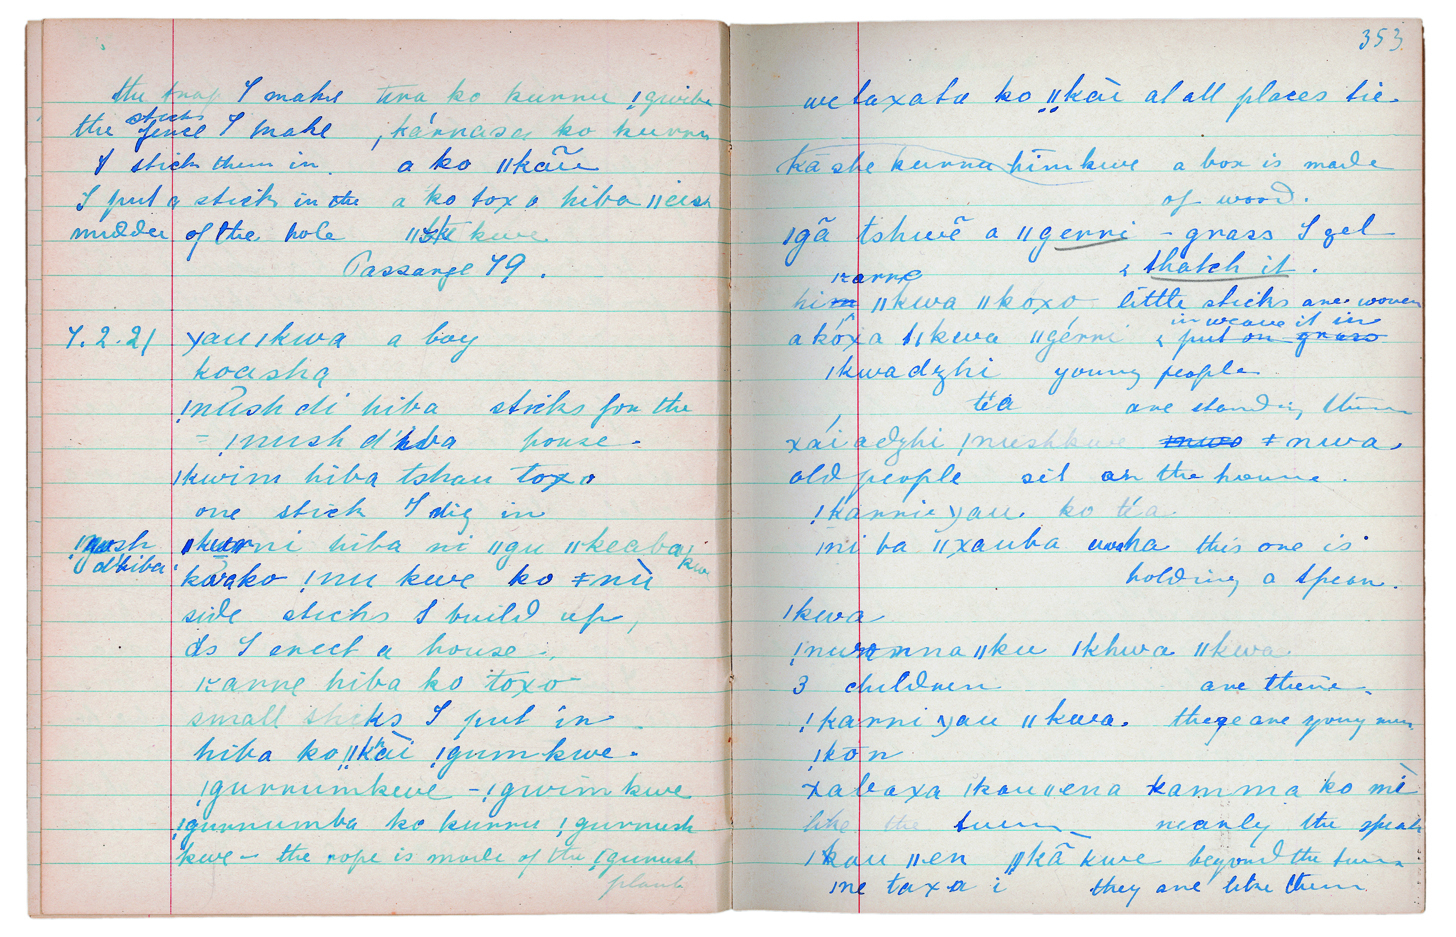 the trap I make tena ko kurru !gwiba
sticks
the fence I make , kárnasa ko kurru
I stick them in. a ko ǁkãũ
I put a stick in the a ko toxo hiba ǁeish
middle of the hole kwe
Passarge 79.
7.2.21 yauǀkwa a boy
koasha
!nũsh di hiba sticks for the
= !nush d'hiba house.
ǀkwim hiba tshau toxo
one stick I dig in
!nush ǀkurni hiba ni ǁgu ǁkeaba kwe
d'hiba kwako !nu kwe ko ǂnù
side sticks I build up,
As I erect a house.
ɤanne hiba ko toxo
small sticks I put in
hiba ko ǁkāi !gumkwe.
!gurrumkwe - !gwimkwe
!gurrumba ko kurru !gurrush
kwe - the rope is made of the !gurush
plant
353.
we taxata ko ǁkāì at all places tie.
ka she kurru himkwe a box is made
of wood.
ǀgã tshwẽ a ǁgerri - grass I get
ɤanne & thatch it.
him ǁkwa ǁkoxo little sticks are woven
in weave it in
a kóxa ǀkwa ǁgérri & put on grass
ǀkwadzhi young people
téá are standing them
xáiadzhi !nushkwe ǂnwa.
old people sit on the house.
!karri yau ko téa
!ni ba ǁxauba washa this one is
holding a spear.
ǀkwa
!nuronna ǁku ǀkhwa ǁkwa
3 children are there.
!karni yau ǁkwa. these are young men
!kōn
xabaxa ǀkauǁena kamma ko mè
like the nearly the speak
ǀkau ǁen ǁkã kwe beyond the
ǀne taxa i they are like them